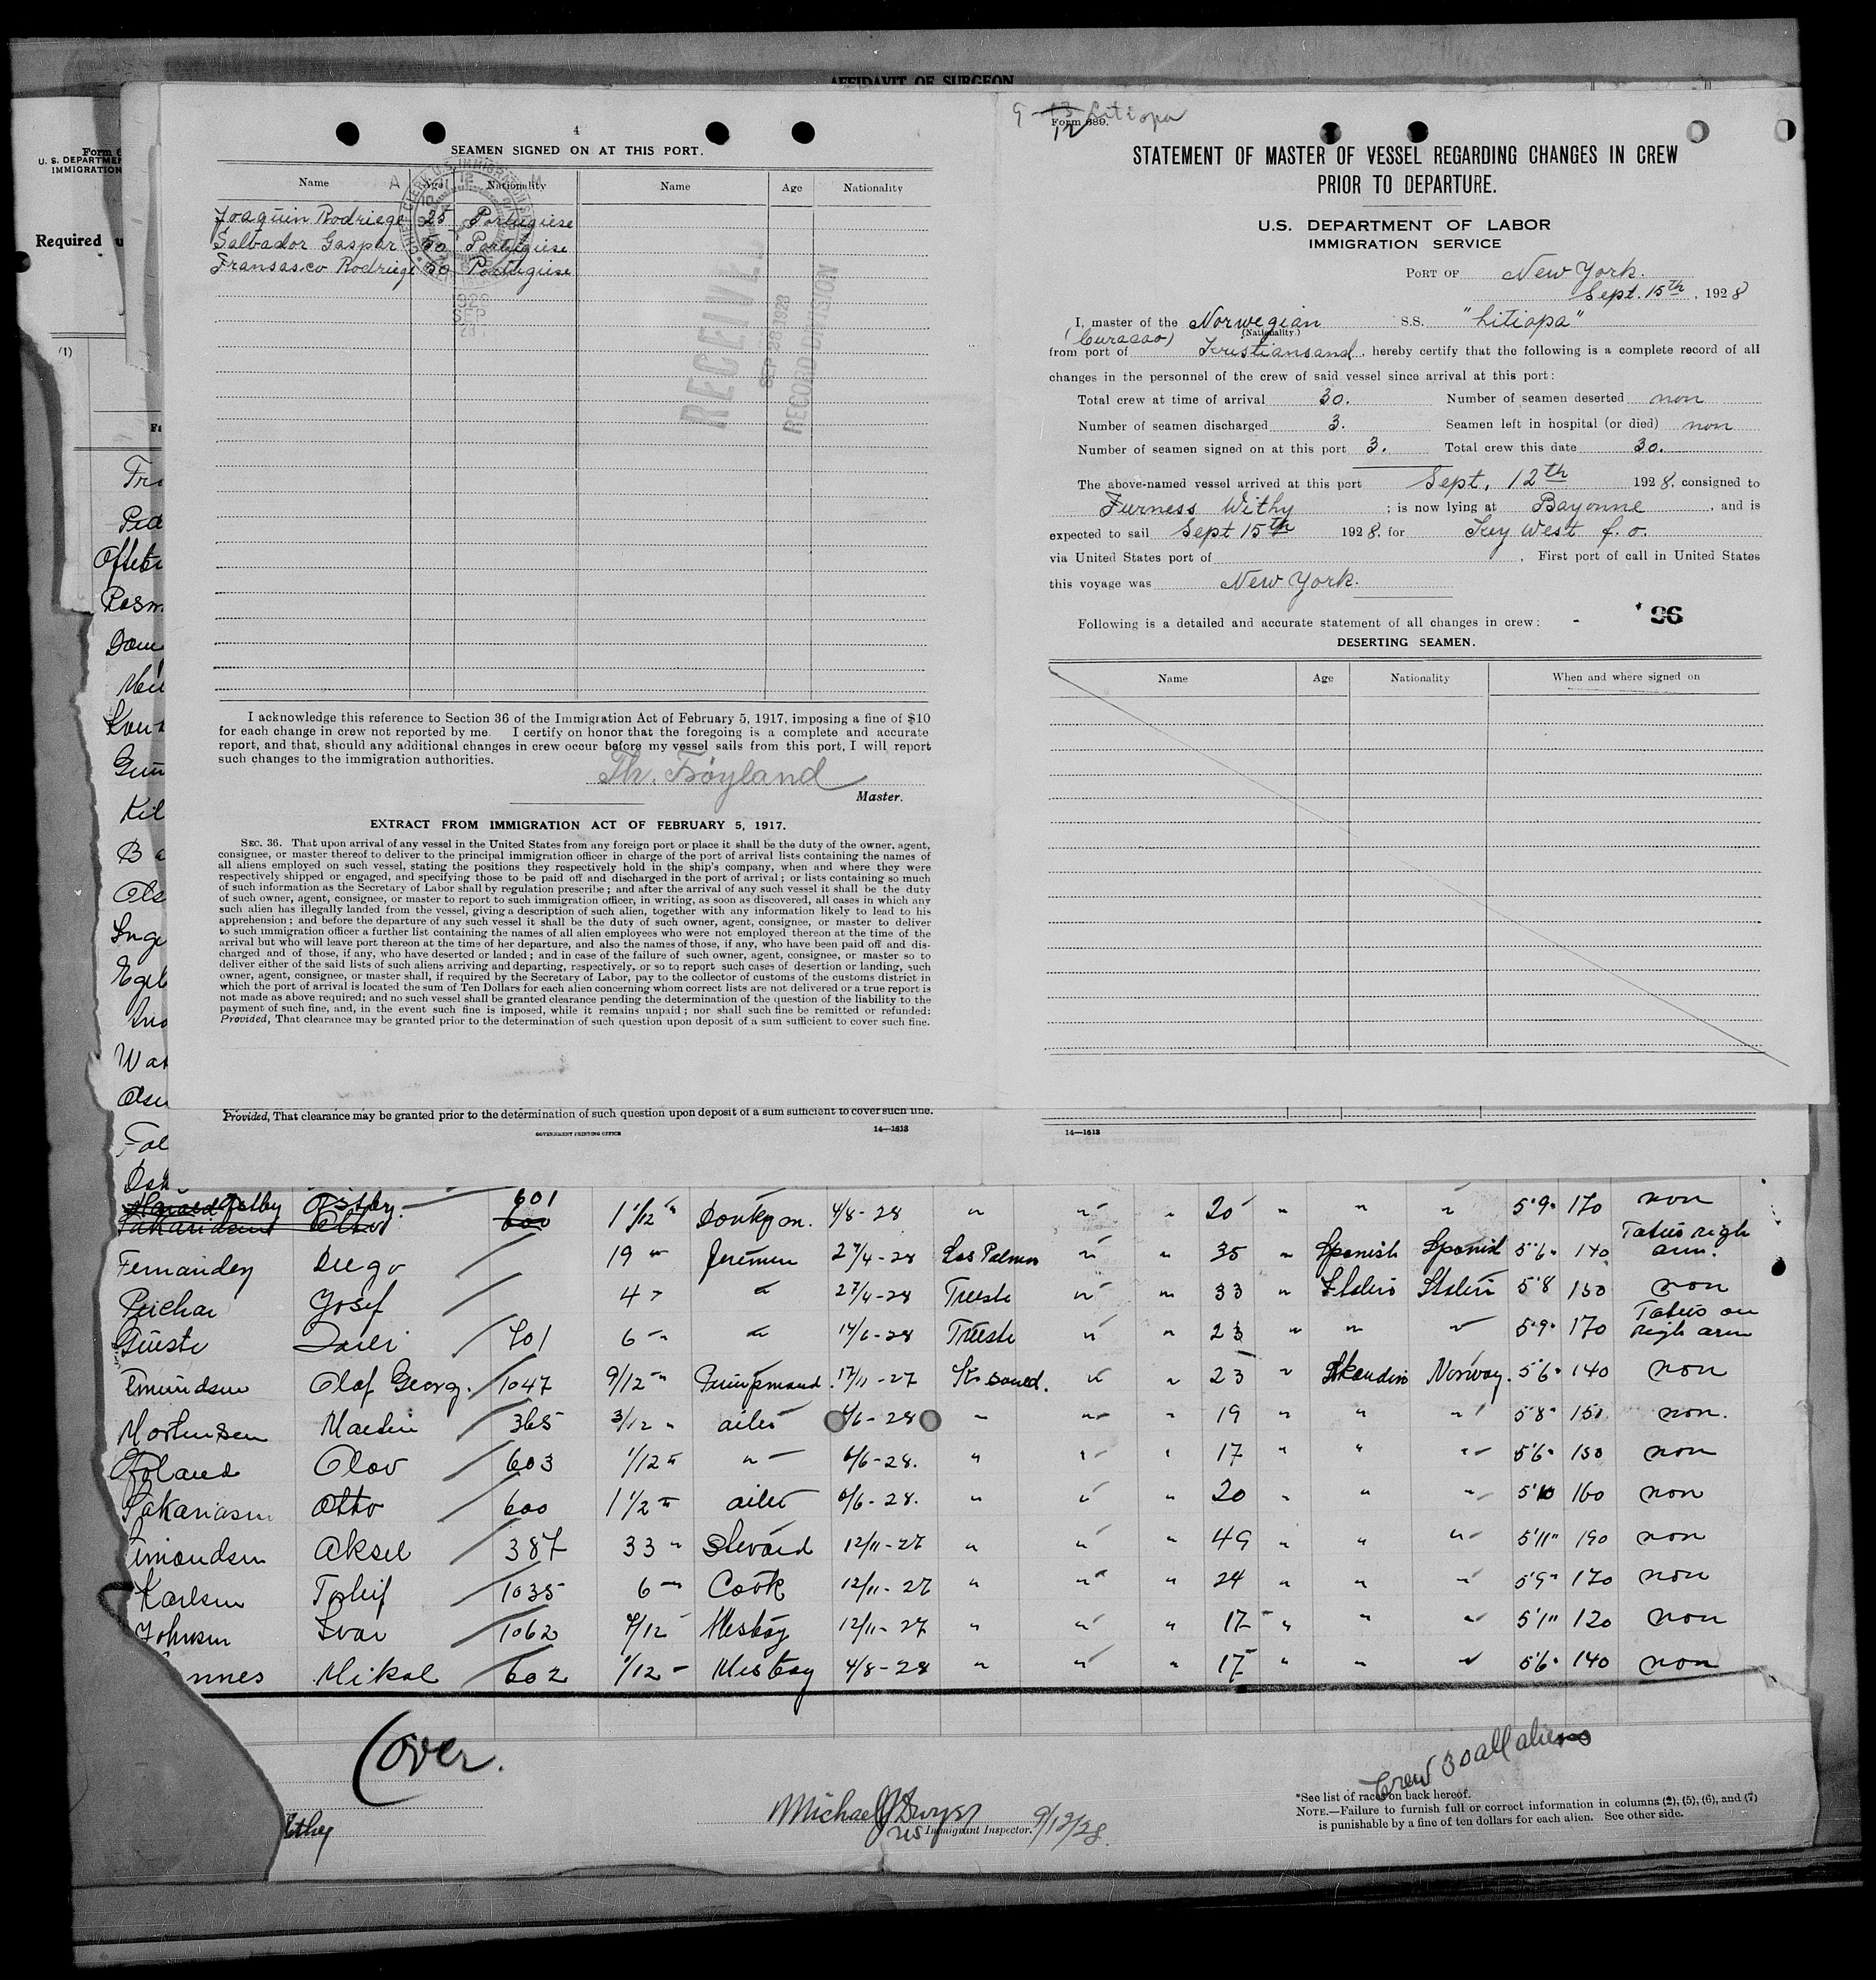 AFFIDAVIT OF SURGEON
U. S. DEPARTME
IMMIGRATION
Required
(1)
Fr
Ped
Rasm
Olse
Inge
Wat
4
SEAMEN SIGNED ON AT THIS PORT.
Name Age Nationality Name Age Nationality
Joaquin Rodriege 25 Portugiese
Salvador Gaspar 50 Portugiese
Fransasco Rodriege 30 Portugiese
1928
SEP
RECEIVE
SEP 28 1928
RECORD DIVISION
I acknowledge this reference to Section 36 of the Immigration Act of February 5, 1917, imposing a fine of $10
for each change in crew not reported by me. I certify on honor that the foregoing is a complete and accurate
report, and that, should any additional changes in crew occur before my vessel sails from this port, I will report
such changes to the immigration authorities.
Th. Frøyland
Master.
EXTRACT FROM IMMIGRATION ACT OF FEBRUARY 5, 1917.
SEC. 36. That upon arrival of any vessel in the United States from any foreign port or place it shall be the duty of the owner, agent,
consignee, or master thereof to deliver to the principal immigration officer in charge of the port of arrival lists containing the names of
all aliens employed on such vessel, stating the positions they respectively hold in the ship's company, when and where they were
respectively shipped or engaged, and specifying those to be paid off and discharged in the port of arrival; or lists containing so much
of such information as the Secretary of Labor shall by regulation prescribe; and after the arrival of any such vessel it shall be the duty
of such owner, agent, consignee, or master to report to such immigration officer, in writing, as soon as discovered, all cases in which any
such alien has illegally landed from the vessel, giving a description of such alien, together with any information likely to lead to his
apprehension; and before the departure of any such vessel it shall be the duty of such owner, agent, consignee, or master to deliver
to such immigration officer a further list containing the names of all alien employees who were not employed thereon at the time of the
arrival but who will leave port thereon at the time of her departure, and also the names of those, if any, who have been paid off and dis-
charged and of those, if any, who have deserted or landed; and in case of the failure of such owner, agent, consignee, or master so to
deliver either of the said lists of such aliens arriving and departing, respectively, or so to report such cases of desertion or landing, such
owner, agent, consignee, or master shall, if required by the Secretary of Labor, pay to the collector of customs of the customs district in
which the port of arrival is located the sum of Ten Dollars for each alien concerning whom correct lists are not delivered or a true report is
not made as above required; and no such vessel shall be granted clearance pending the determination of the question of the liability to the
payment of such fine, and, in the event such fine is imposed, while it remains unpaid; nor shall such fine be remitted or refunded:
Provided, That clearance may be granted prior to the determination of such question upon deposit of a sum sufficient to cover such fine.
Provided, That clearance may be granted prior to the determination of such question upon deposit of a sum sufficient to cover such fine.
GOVERNMENT PRINTING OFFICE 14—1613
9 - 13 Litiopa
12
Form 689.
STATEMENT OF MASTER OF VESSEL REGARDING CHANGES IN CREW
PRIOR TO DEPARTURE.
U.S. DEPARTMENT OF LABOR
IMMIGRATION SERVICE
PORT OF New York.
Sept. 15th, 1928
I, master of the Norwegian S.S. "Litiopa"
(Nationality.)
(Curacao)
from port of Kristiansand, hereby certify that the following is a complete record of all
changes in the personnel of the crew of said vessel since arrival at this port:
Total crew at time of arrival 30. Number of seamen deserted non
Number of seamen discharged 3. Seamen left in hospital (or died) non
Number of seamen signed on at this port 3. Total crew this date 30.
The above-named vessel arrived at this port Sept. 12th 1928, consigned to
Furness Withy ; is now lying at Bayonne, and is
expected to sail Sept 15th 1928, for Key West f. o.
via United States port of . First port of call in United States
this voyage was New York.
Following is a detailed and accurate statement of all changes in crew: - 96
DESERTING SEAMEN.
Name Age Nationality When and where signed on
14—1613
601 1 1/12 " Donkym. 4/8-28 " " " 20 " " " 5'9" 170 non
Fernandez Diego 19 " 27/4-28 Las Palmas " " 35 " Spanish Spanish 5'6" 140
Josef 4 " " 27/4-28 Trieste " " 33 " 5'8 150 non
701 6 " " 14/6-28 Trieste " " 23 " " " 5'9" 170 Tatus on righ arm
Olaf Georg. 1047 9/12 " 17/11-27 " " 23 " Skandin Norway. 5'6" 140 non
Mortensen Martin 365 3/12 " 4/6-28 " " " 19 " " " 5'8" 150 non.
Olav 603 1/12 " " 6/6-28. " " " 17 " " " 5'6" 150 non
Otto 600 1 1/2 " 6/6-28. " " " 20 " " " 5'10 160 non
Aksel 387 33 " Steward 12/11-27 " " " 49 " " " 5'11" 190 non
Karlsen 1035 6 " Cook 12/11-27 " " " 24 " " " 5'9" 170 non
Johnsen Ivar 1062 7/12 Mesboy 12/11-27 " " " 17 " " " 5'1" 120 non
nnes Mikal 602 1/12 " Mesboy 4/8-28 " " " 17 " " " 5'6" 140 non
Over.
Crew 30 all aliens
Michael J Dwyer
US Immigrant Inspector. 9/12/28.
*See list of races on back hereof.
NOTE.—Failure to furnish full or correct information in columns (2), (5), (6), and (7)
is punishable by a fine of ten dollars for each alien. See other side.